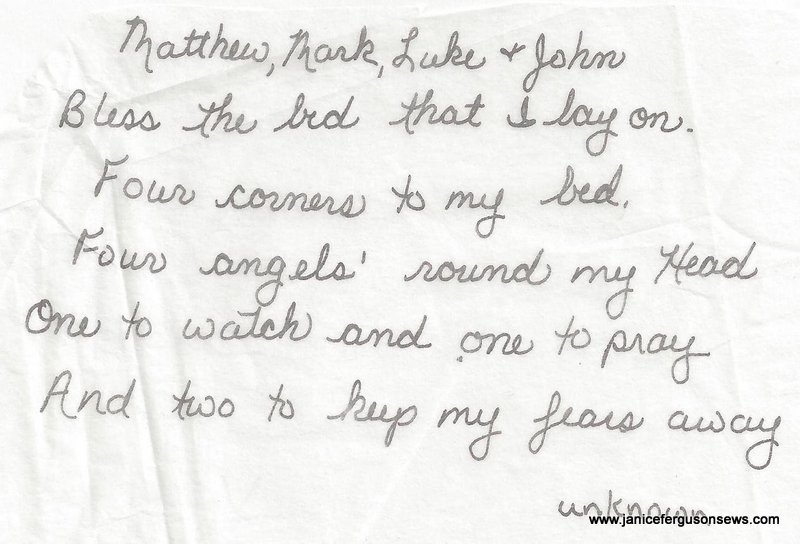 Matthew, Mark, Luke + John
Bless the bed that I lay on.
Four corners to my bed.
Four angels' round my Head
One to watch and one to pray
And two to keep my fears away
unknown
www.janicefergusonsews.com